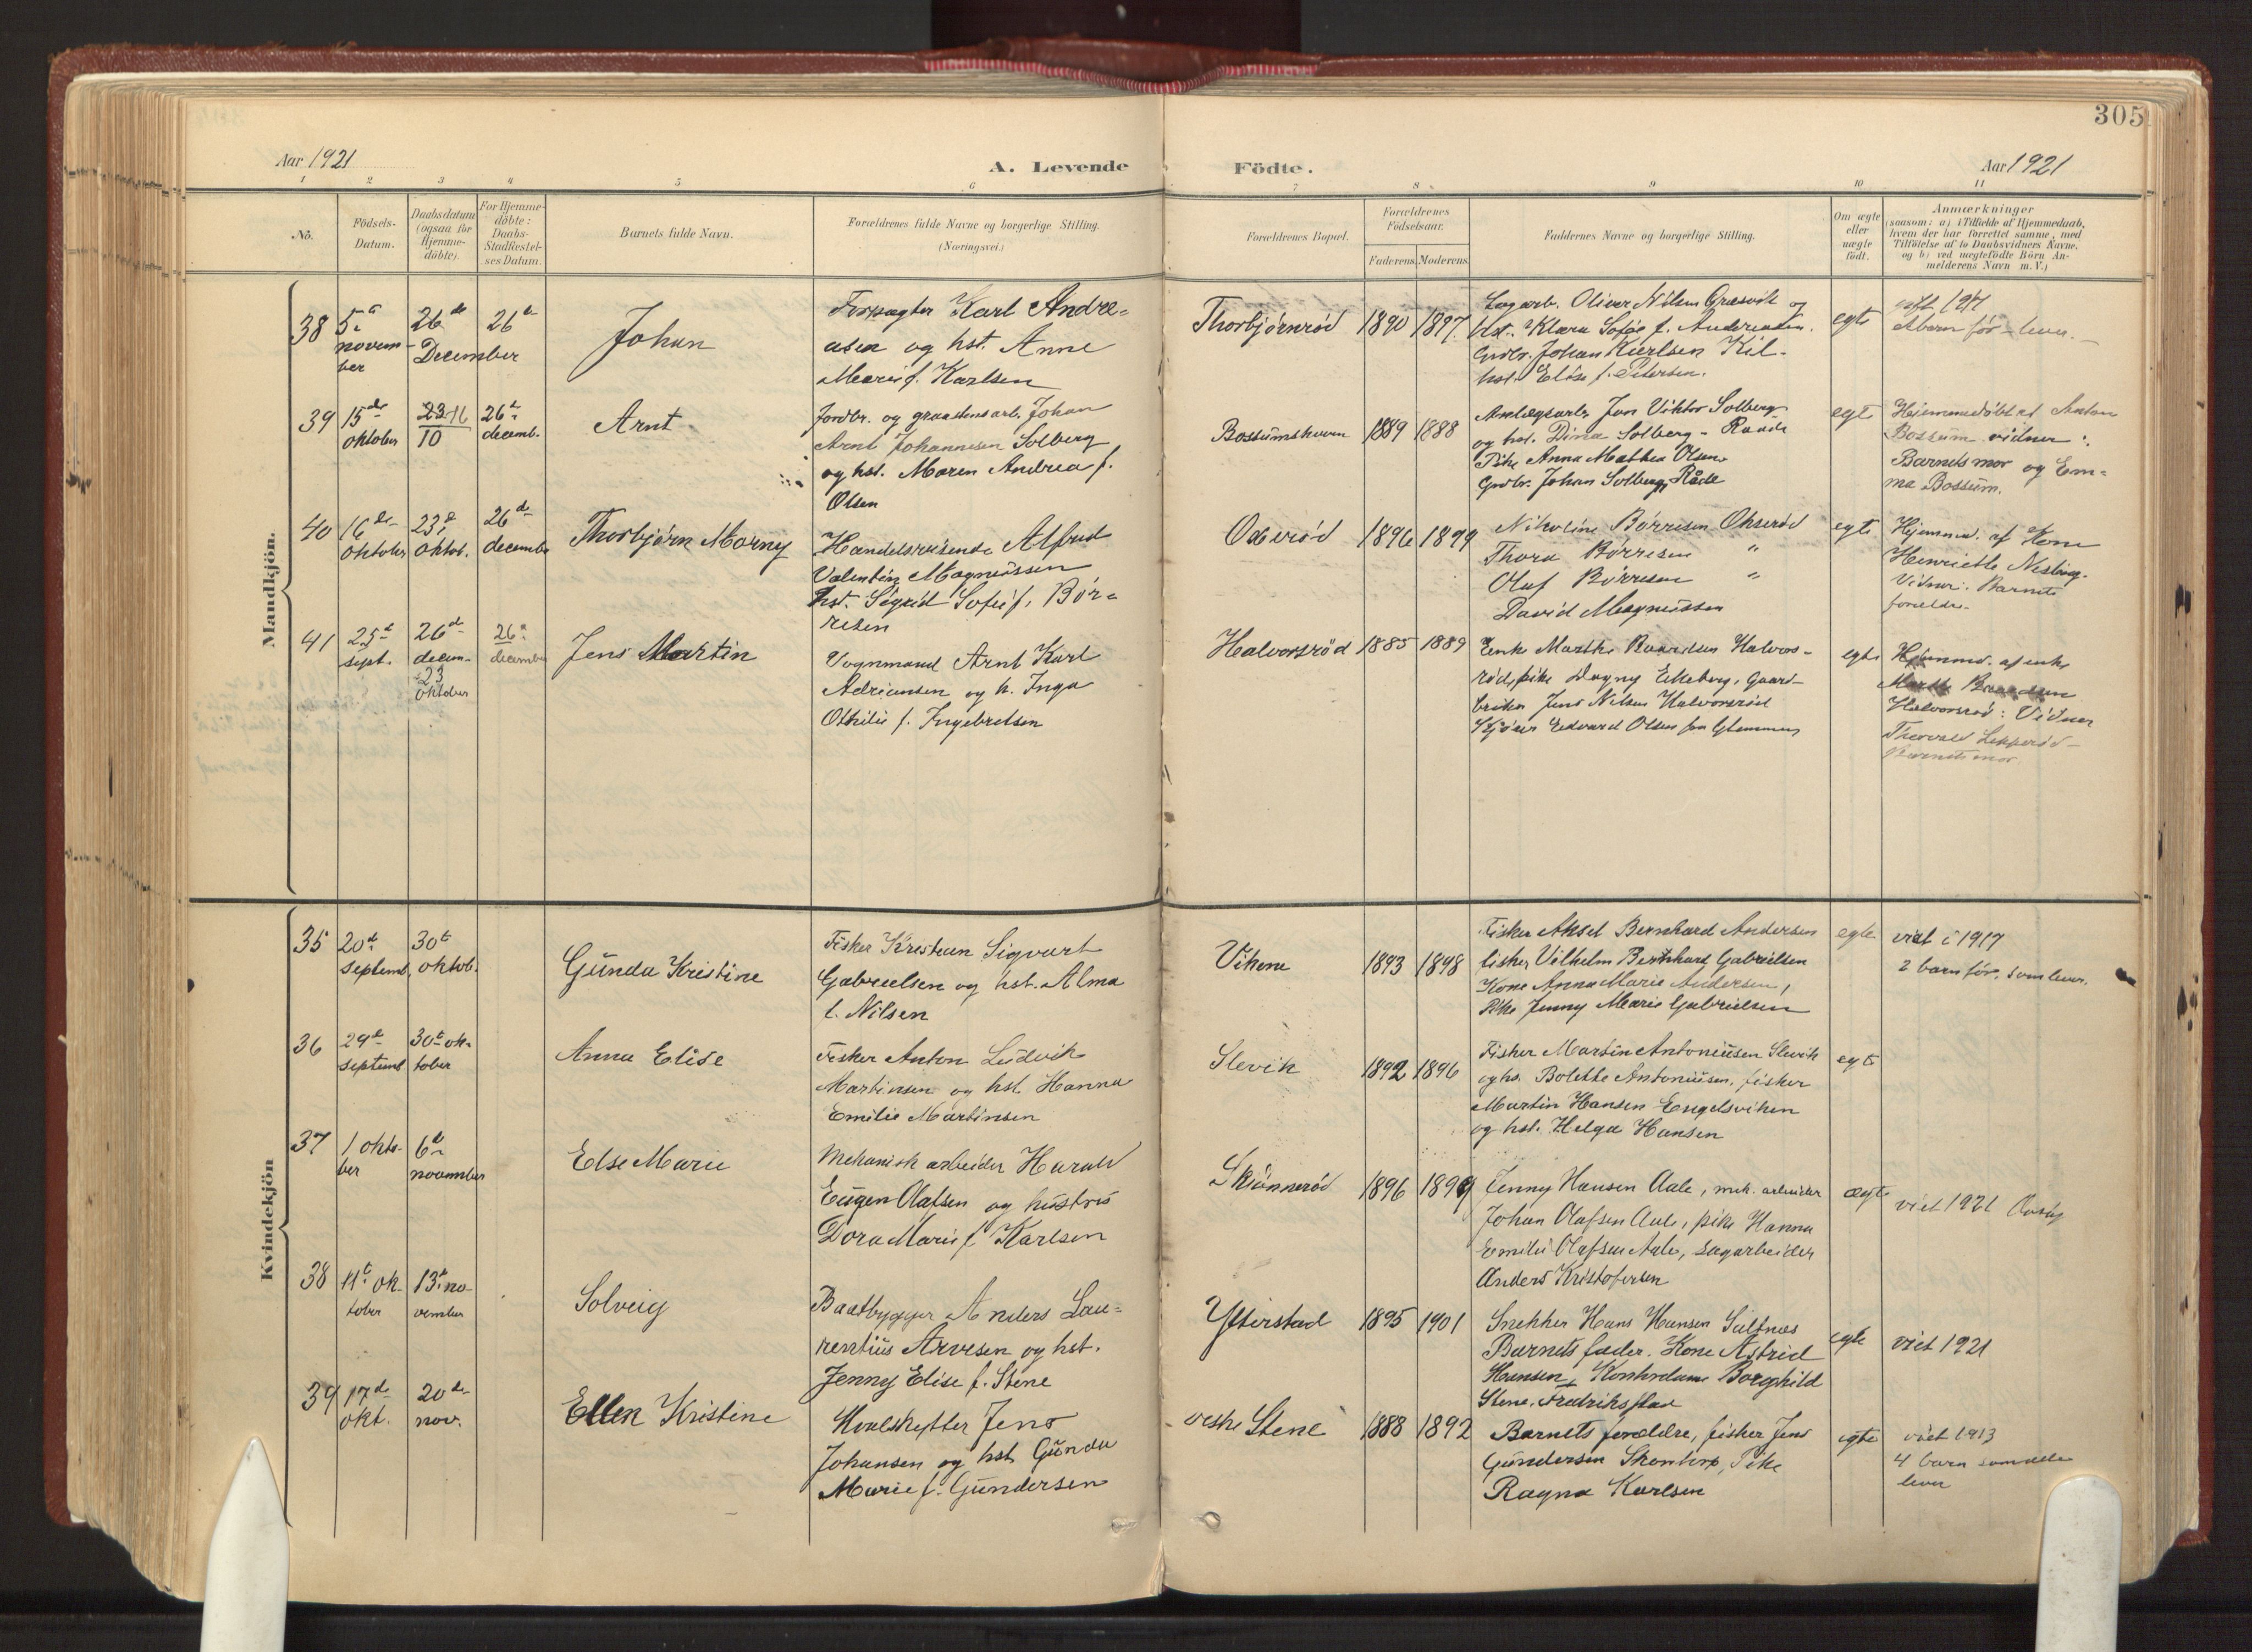 305
Aar 1921
A. Levende
Födte.
Aar 1921
1 2 3 4 5 6 7 8 9 10 11
No.
Födsels-
Datum.
Daabsdatum
(ogsaa for
Hjemme-
döbte).
For Hjemme-
döbte:
Daabs-
Stadfæstel-
ses Datum.
Barnets fulde Navn.
Forældrenes fulde Navne og borgerlige Stilling.
(Næringsvei.)
Forældrenes Bopæl.
Forældrenes
Födselsaar.
Faderens. Moderens.
Faddernes Navne og borgerlige Stilling.
Om ægte
eller
uægte
födt.
Anmærkninger
(saasom: a) i Tilfælde af Hjemmedaab,
hvem der har forrettet samme, med
Tilföielse af to Daabsvidners Navne,
og b) ved uægtefödte Börn An-
melderens Navn m. V.)
Mandkjön.
38
5te
novem-
ber
26de
December
26de
Johan
Karl Andre-
asen og hst. Anne
Marie f. Karlsen
Thorbjørnrød
1890
1897
Sagarb. Oliver Nilsen Græsvik og
hst. Klara Sofie f. Andreasen.
Grdbr. Johan Karlsen Kil-
hst. Elise f. Petersen.
egte
39
15de
oktober
23-16
10
26de
decemb.
Arnt
Jordbr. og graastensarb. Johan
Arnt Johannesen Solberg
og hst. Maren Andrea f.
Olsen
Bossumshaven
1889
1888
Anlægsarb. Jon Viktor Solberg
og hst. Dina Solberg - Raade
Pike Anna Mathea Olsen
Grdbr. Johan Solberg, Råde
egte
Hjemmedøbt af Anton
Bossum vidner:
Barnets mor og Em-
ma Bossum.
40
16de
oktober
23de
oktob.
26de
december
Thorbjørn Morny
Handelsreisende Alfred
Valentin Magnussen
hst. Sigrid Sofie f. Bør-
resen
Oxerød
1896
1899
Nikoline Børresen Okserød
Thora Børresen "
Olaf Børresen "
David Magnussen
egte
Hjemmed. af Kone
Henriette
Vidner: Barnets
forældre.
41
25de
sept.
26de
decem-
23
oktober
26de
december
Jens Martin
Vognmand Arnt Karl
Adriansen og h. Inga
Othilie f. Ingebretsen
Halvorsrød
1885
1889
Enke Marthe Baardsen Halvors-
rød, pike Dagny Ekeberg, Gaard-
bruker Jens Nilsen Halvorsrød
Edvard Olsen fra Glemmen
egte
Hjemmed. af enke
Marthe Baardsen
Halvorsrød: Vidner
Thorvald
Barnets mor
Kvindekjön
35
20de
septemb.
30te
oktob.
Gunda Kristine
Fisker Kristian Sigvart
Gabrielsen og hst. Alma
f. Nilsen
Vikene
1893
1898
Fisker Aksel Bernhard Andersen
fisker Vilhelm Bernhard Gabrielsen
Kone Anna Marie Andersen,
Pike Jenny Marie Gabrielsen
egte
viet i 1917
2 barn før, som lever.
36
29de
septemb
30te ok-
tober
Anna Elise
Fisker Anton Ludvik
Martinsen og hst Hanna
Emilie Martinsen
Slevik
1892
1896
Fisker Martin Antoniusen Slevik
og hs. Bolette Antoniusen, fisker
Martin Hansen Engelsviken
og hst. Helga Hansen
egte
37
1 okto-
ber
6te
november
Else Marie
Mekanisk arbeider Harald
Eugen Olafsen og hustru
Dora Marie f. Karlsen
Skjønnerød
1896
1899
Jenny Hansen Aale, mek. arbeider
Johan Olafsen Aale, pike Hanna
Emilie Olafsen Aale, sagarbeider
Anders Kristofersen
ægte
viet 1921 Onsøy
38
11te ok-
tober
13de no-
vember
Solveig
Baatbygger Anders Lau-
rentius Arvesen og hst.
Jenny Elise f. Stene
Ytterstad
1895
1901
Snekker Hans Hansen Saltnæs
Barnets fader. Kone Astrid
Hansen, Kontordame Borghild
Stene, Fredrikstad
egte
viet 1921
39
17de
okt.
20de
nov.
Ellen Kristine
Hvalskytter Jens
Johansen og hst Gunda
Marie f. Gundersen
vestre Stene
1888
1892
Barnets forældre, fisker Jens
Gundersen Skontorp, Pike
Ragna Karlsen
egte
viet 1913
4 barn som alle
lever